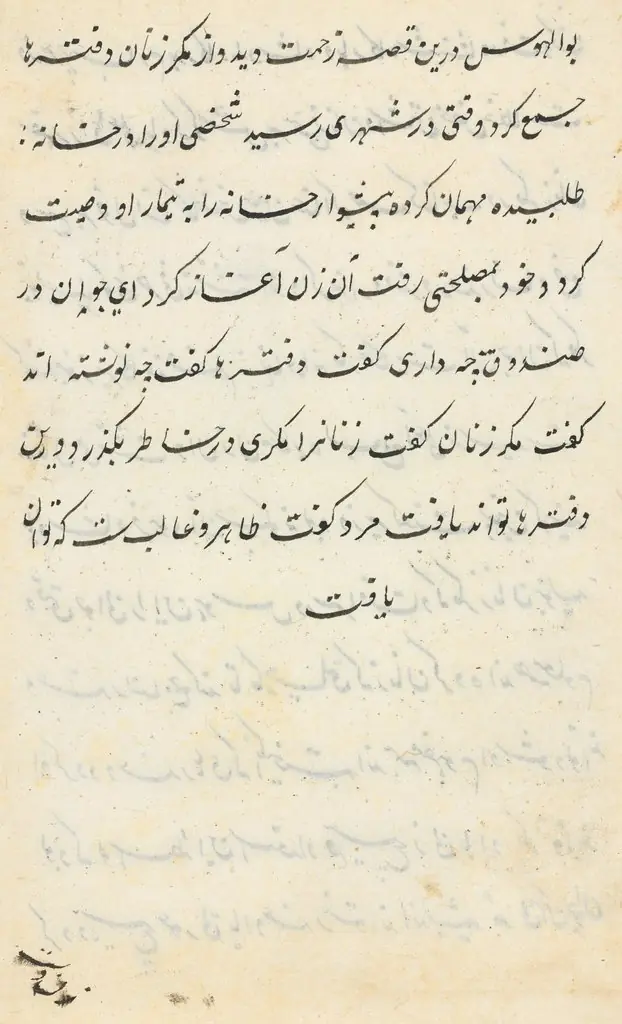 بوالهوس درین قصه زحمت دید و از مکر زنان دفترها
جمع کرد وقتی در شهری رسید شخصی او را در خانه
طلبیده مهمان کرده پیشوا خانه را به تیمار او وصیت
کرد و خود بمصلحتی رفت آن زن آغاز کرد ای جوان در
صندوق چه داری گفت دفترها گفت چه نوشته اند
گفت مکر زنان گفت زنانرا مکری در خاطر بگذرد و درین
دفترها تواند یافت مرد گفت ظاهر و غالب ست که توان
یافت